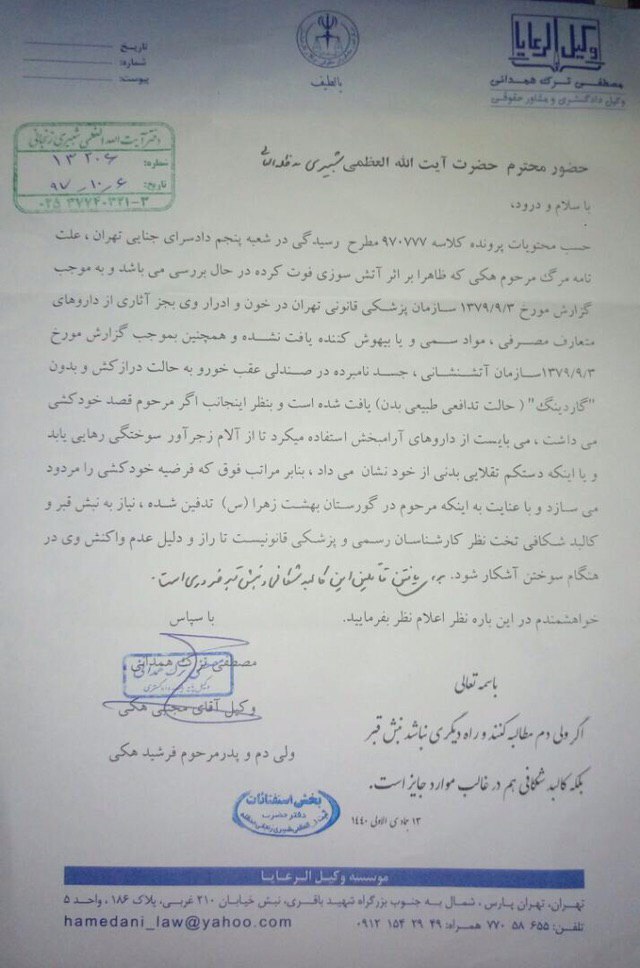 تاریخ:
شماره:
پیوست:
باللطیف
وکیل الرعایا
مصطفی ترک همدانی
وکیل دادگستری و مشاور حقوقی
دفتر آیت الله العظمی شبیری زنجانی
شماره: ۱۳۲۰۶
تاریخ: ۹۷_۱۰_۶
۰۲۵ ۳۷۷۴۰۳۲۱-۳
حضور محترم حضرت آیت الله العظمی شبیری مدظله العالی
با سلام و درود،
حسب محتویات پرونده کلاسه ۹۷۰۷۷۷ مطرح رسیدگی در شعبه پنجم دادسرای جنایی تهران ، علت
نامه مرگ مرحوم هکی که ظاهرا بر اثر آتش سوزی فوت کرده در حال بررسی می باشد و به موجب
گزارش مورخ ۱۳۷۹/۹/۳ سازمان پزشکی قانونی تهران در خون و ادرار وی بجز آثاری از داروهای
متعارف مصرفی ، مواد سمی و یا بیهوش کننده یافت نشده و همچنین بموجب گزارش مورخ
۱۳۷۹/۹/۳سازمان آتشنشانی ، جسد نامبرده در صندلی عقب خورو به حالت درازکش و بدون
"گاردینگ" ( حالت تدافعی طبیعی بدن) یافت شده است و بنظر اینجانب اگر مرحوم قصد خودکشی
می داشت ، می بایست از داروهای آرامبخش استفاده میکرد تا از آلام زجرآور سوختگی رهایی یابد
و یا اینکه دستکم تقلایی بدنی از خود نشان می داد ، بنابر مراتب فوق که فرضیه خودکشی را مردود
می سازد و با عنایت به اینکه مرحوم در گورستان بهشت زهرا (س) تدفین شده ، نیاز به نبش قبر و
کالبد شکافی تخت نظر کارشناسان رسمی و پزشکی قانونیست تا راز و دلیل عدم واکنش وی در
هنگام سوختن آشکار شود. برای یافتن قاتلین این کالبد شکافی و نبش قبر ضروری است.
خواهشمندم در این باره نظر اعلام نظر بفرمایید.
با سپاس
مصطفی ترک همدانی
وکیل آقای مجتبی هکی
ولی دم و پدرمرحوم فرشید هکی
باسمه تعالی
اگر ولی دم مطالبه کنند و راه دیگری نباشد نبش قبر
بلکه کالبد شکافی هم در غالب موارد جایز است.
۱۳ جمادی الاولی ۱۴۴۰
بخش استفتائات
دفتر حضرت
آیت الله العظمی شبیری زنجانی مدظله
موسسه وکیل الرعایا
تهران، تهران پارس، شمال به جنوب بزرگراه شهید باقری، نبش خیابان ۲۱۰ غربی، پلاک ۱۸۶، واحد ۵
تلفن: ۶۵۵ ۵۸ ۷۷۰ همراه: ۴۹ ۲۹ ۱۵۴ ۰۹۱۲
hamedani_law@yahoo.com